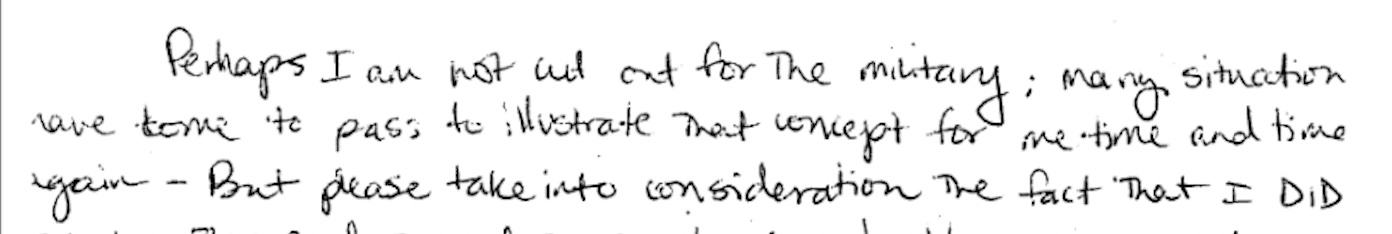 Perhaps I am not cut out for The military; many situation
have come to pass to illustrate That concept for me time and time
again - But please take into consideration The fact That I DiD